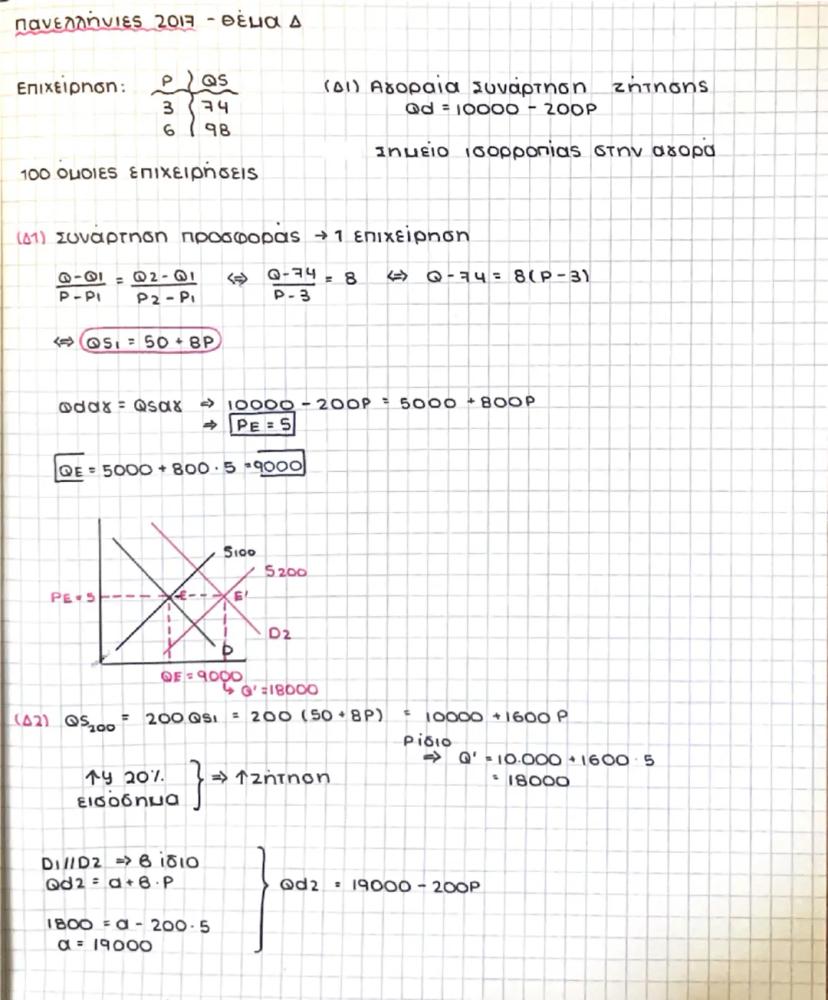 πανελλήνιες 2017 - Θέμα Δ
Επιχείρηση: P QS
3 74
6 98
(Δ1) Αγοραία Συνάρτηση ζήτησης
Qd = 10000 - 200P
Σημείο ισορροπίας στην αγορά
100 όμοιες επιχειρήσεις
(Δ1) Συνάρτηση προσφοράς → 1 επιχείρηση
Q-Q1/P-P1 = Q2-Q1/P2-P1 ⇔ Q-74/P-3 = 8 ⇔ Q-74 = 8(P-3)
⇔ QS1 = 50 + 8P
Qdαγ = Qsαγ ⇒ 10000 - 200P = 5000 + 800P
⇒ PE = 5
QE = 5000 + 800 · 5 = 9000
S100
S200
PE = 5 E E'
D2
D
QE = 9000
↳ Q' = 18000
(Δ2) QS200 = 200 QS1 = 200 (50 + 8P) = 10000 + 1600 P
P ίδιο
⇒ Q' = 10.000 + 1600 · 5
= 18000
↑Y 20% εισόδημα } ⇒ ↑ζήτηση
D1//D2 ⇒ β ίδιο
Qd2 = α + β · P
Qd2 = 19000 - 200P
1800 = α - 200 · 5
α = 19000